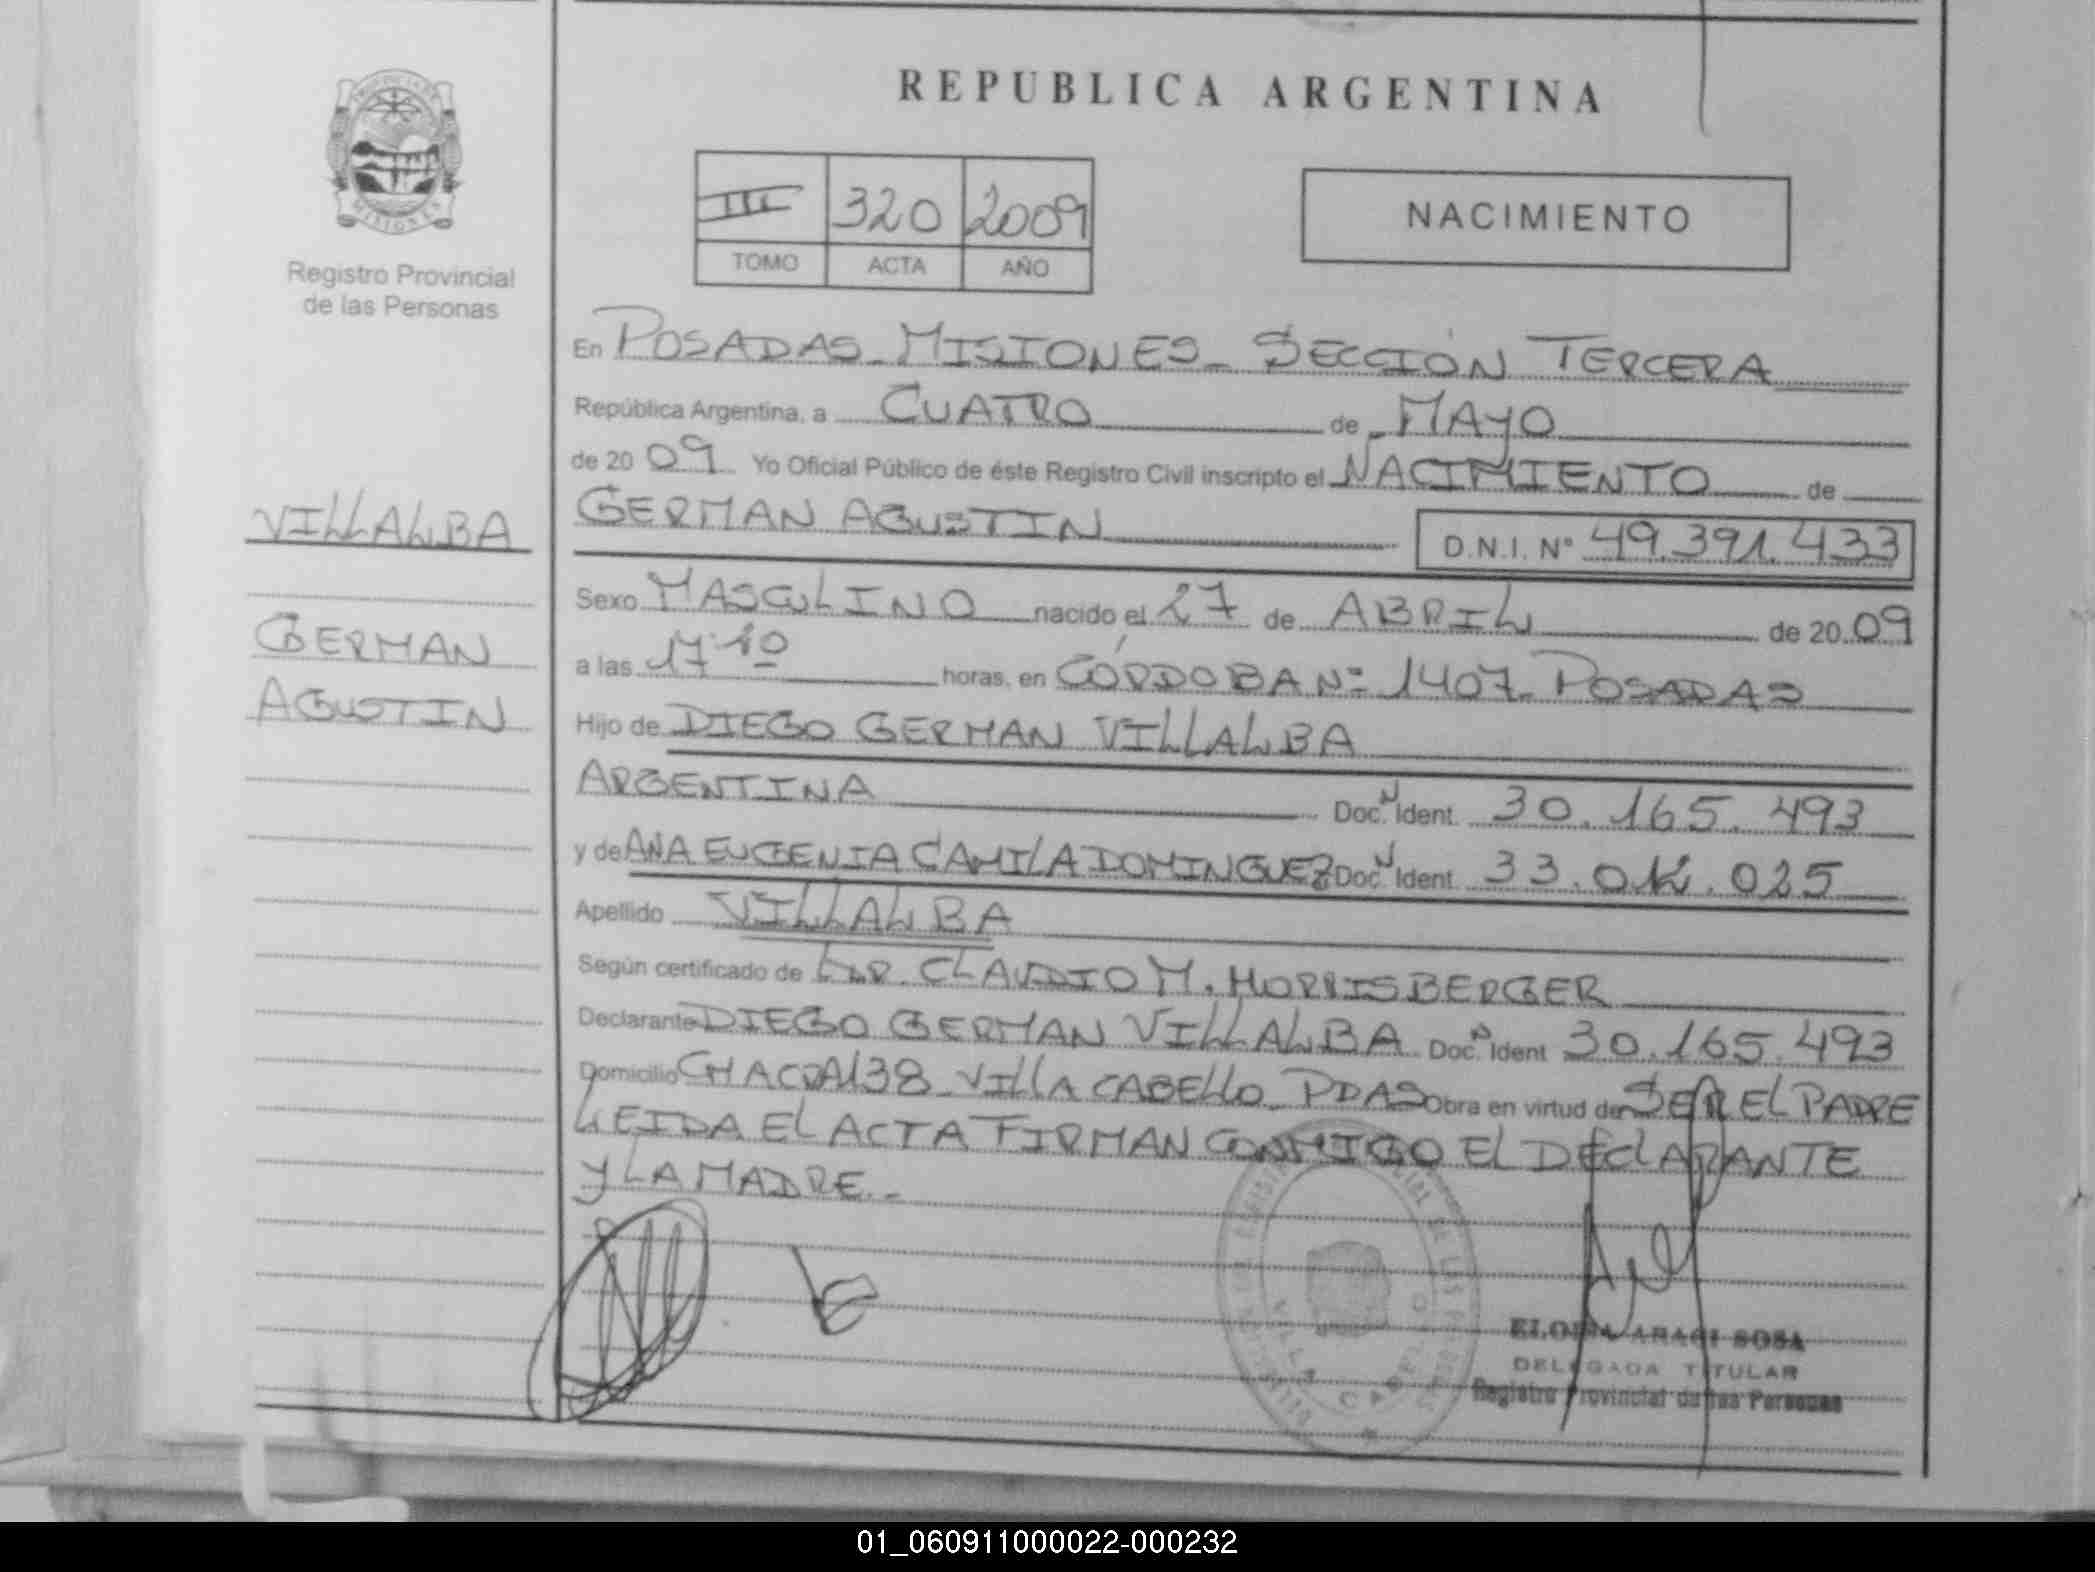 REPUBLICA ARGENTINA
PROVINCIA DE
MISIONES
Registro Provincial
de las Personas
III 320 2009
TOMO ACTA AÑO
NACIMIENTO
En POSADAS - MISIONES - SECCIÓN TERCERA
República Argentina, a CUATRO de MAYO
de 20 09 Yo Oficial Público de éste Registro Civil inscripto el NACIMIENTO de
VILLALBA
GERMAN AGUSTIN D.N.I. Nº 49.391.433
Sexo MASCULINO nacido el 27 de ABRIL de 20 09
GERMAN
a las 17:10 horas, en CÓRDOBA Nº 1407 - POSADAS
AGUSTIN
Hijo de DIEGO GERMAN VILLALBA
ARGENTINA Doc. N Ident. 30.165.493
y de ANA EUGENIA CAMILA DOMINGUEZ Doc. N Ident. 33.012.025
Apellido VILLALBA
Según certificado de DR. CLAUDIO M. MORRISBERGER
Declarante DIEGO GERMAN VILLALBA Doc. N Ident 30.165.493
Domicilio CHACRA 138 - VILLA CABELLO - PDAS Obra en virtud de SER EL PADRE
LEIDA EL ACTA FIRMAN CONMIGO EL DECLARANTE
Y LA MADRE.-
VILLA CABELLO
SOSA
DELEGADA TITULAR
Registro Provincial de las Personas
01_060911000022-000232